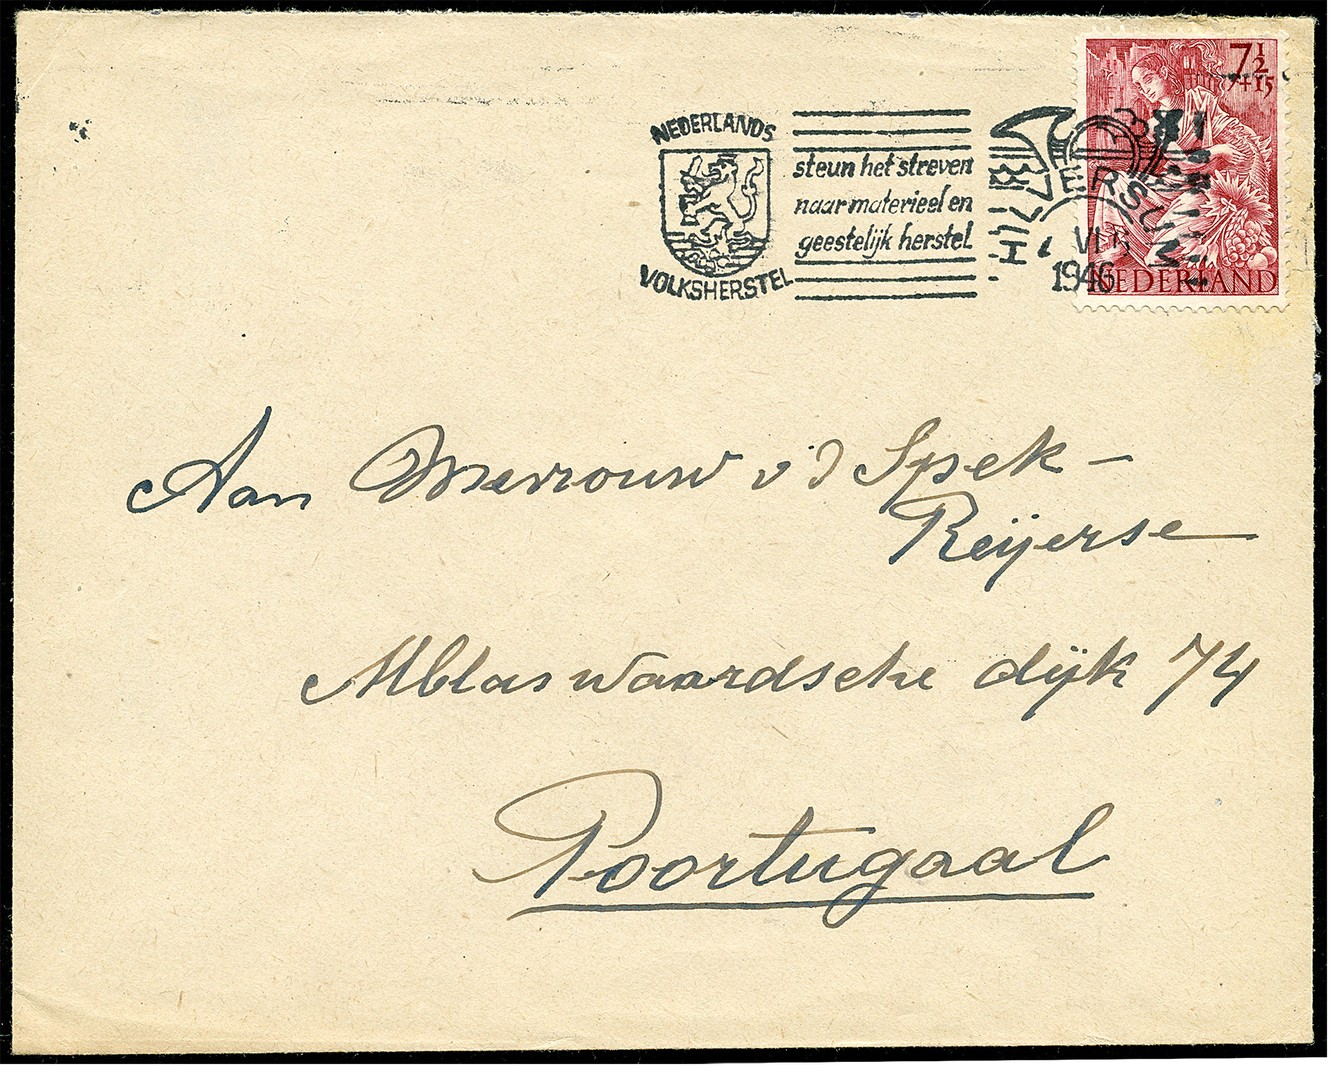 NEDERLANDS
VOLKSHERSTEL
steun het streven
naar materieel en
geestelijk herstel
HILVERSUM
VI
1946
7½
+15
NEDERLAND
Aan Mevrouw v d Spek-
Reijerse
Albleswaardsche dijk 74
Poortugaal